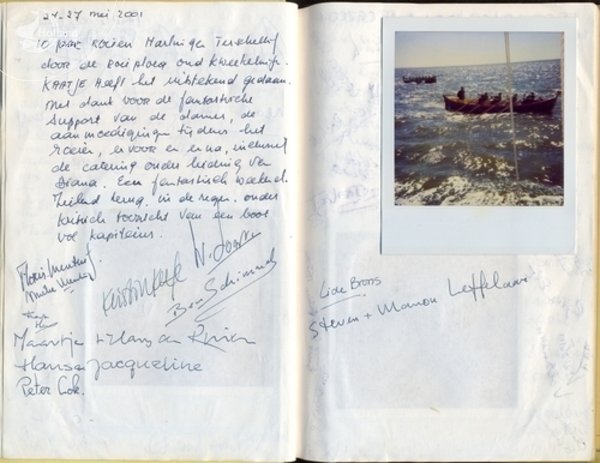 24-27 mei 2001
10 paar roeien Harlingen Terschelling
door de roeiploeg oud Kweekelingen
KAATJE heeft het uitstekend gedaan.
met dank voor de fantastische
support van de dames, de
aanmoedigingen tijdens het
roeien, ervoor en erna, inclusief
de catering onder leiding van
Diana. Een fantastisch weekend.
Zeilend terug, in de regen, onder
kritisch toezicht van een boot
vol kapiteins.
Ben Schimmel
Maartje + Hans de
Hansa Jacqueline
Peter Cok.
Lide Brons
Steven + Manon Leffelaar